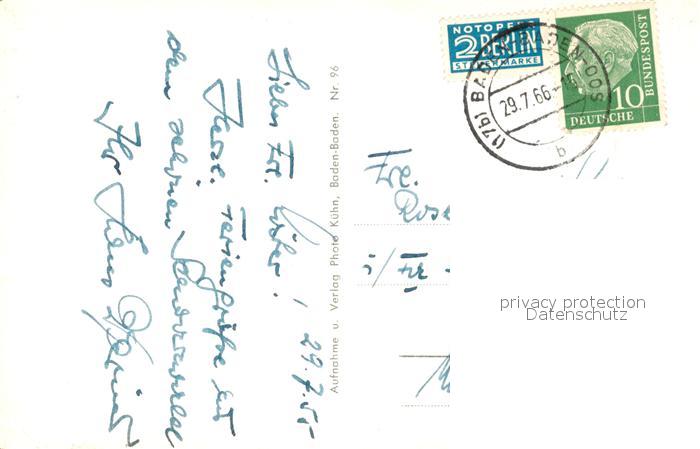 NOTOPFER
2 BERLIN
STEUERMARKE
(17b) BADEN-BADEN OOS
29.7.66
b
10
DEUTSCHE
BUNDESPOST
Liebes Frl. !
29.7.55
Herzl. Feriengrüße aus
dem schönen Schwarzwald
Ihr Hans
Aufnahme u. Verlag Photo Kühn, Baden-Baden. Nr. 96
Frl.
Rose
i/
privacy protection
Datenschutz